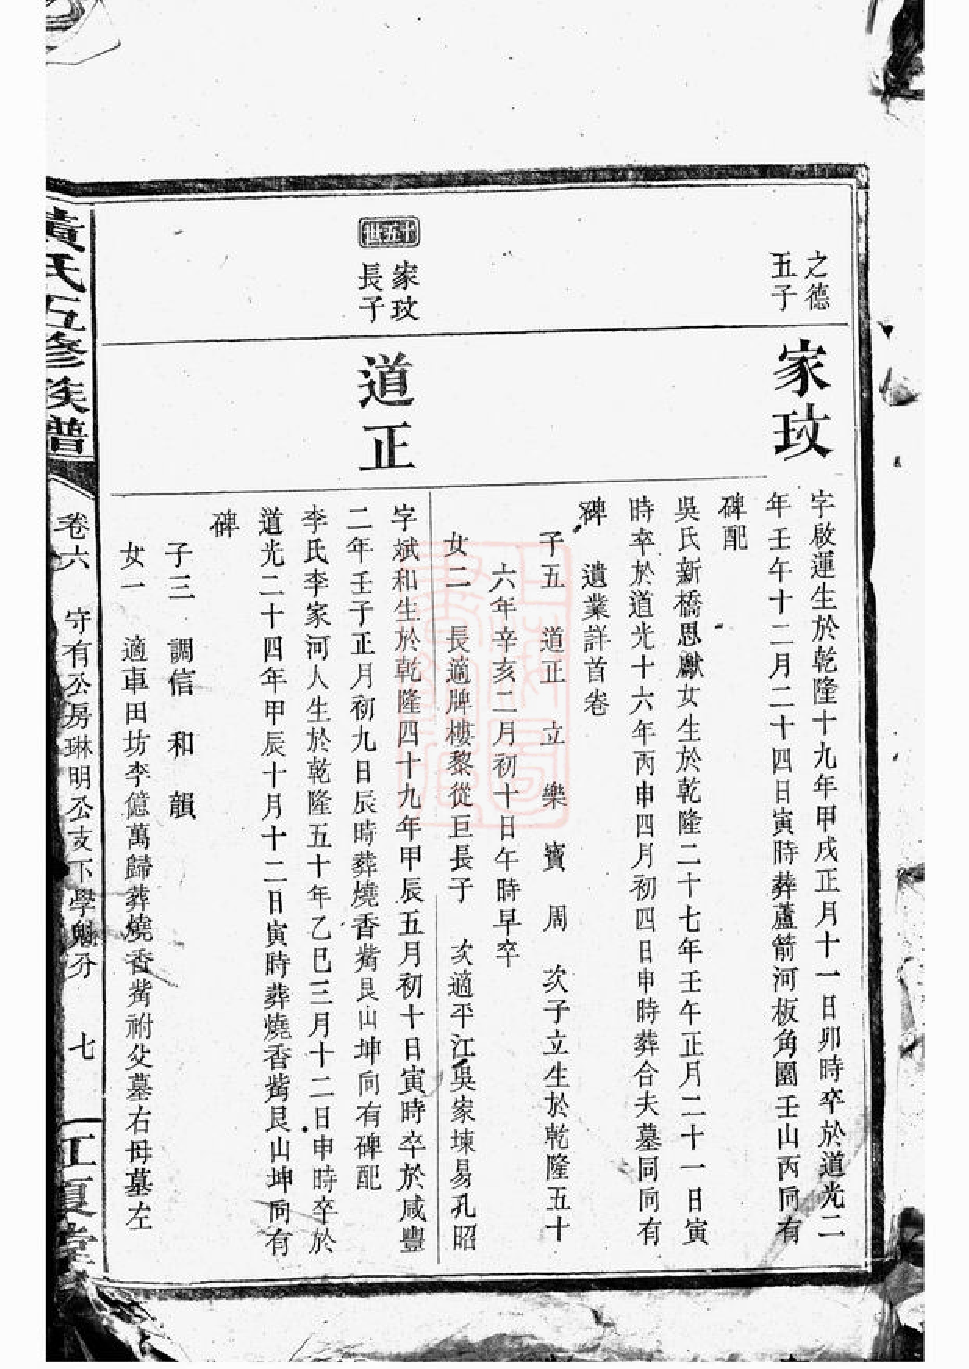 之德
五子
家玟
字啟運生於乾隆十九年甲戌正月十一日卯時卒於道光二
年壬午十二月二十四日寅時葬蘆箭河板角園壬山丙向有
碑配
吳氏新橋思獻女生於乾隆二十七年壬午正月二十一日寅
時卒於道光十六年丙申四月初四日申時葬合夫墓同向有
碑 遺業詳首卷
子五 道正 立 樂 寶 周 次子立生於乾隆五十
六年辛亥二月初十日午時早卒
女二 長適牌樓黎從巨長子 次適平江吳家堜易孔昭
十五世
家玟
長子
道正
字斌和生於乾隆四十九年甲辰五月初十日寅時卒於咸豐
二年壬子正月初九日辰時葬燒香觜艮山坤向有碑配
李氏李家河人生於乾隆五十年乙巳三月十二日申時卒於
道光二十四年甲辰十月十二日寅時葬燒香觜艮山坤向有
碑
子三 調信 和 韻
女一 適車田坊李億萬歸葬燒香觜祔父墓右母墓左
黃氏五修族譜
卷六 守有公房琳明公支下學魁分 七
江夏堂